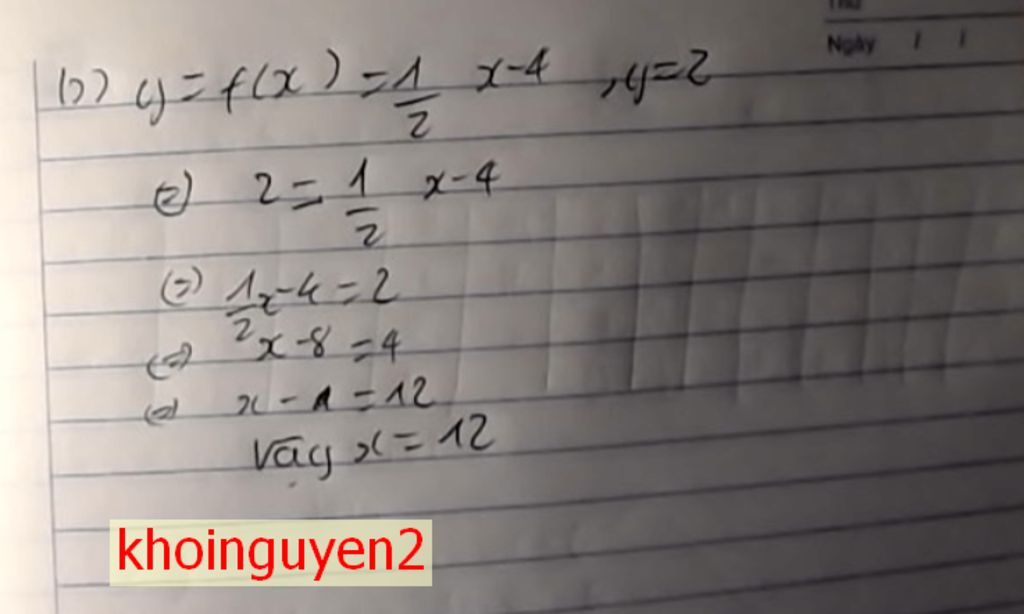 Thứ
Ngày / /
b) y = f(x) = 1/2 x - 4 , y = 2
(=) 2 = 1/2 x - 4
(=) 1/2 x - 4 = 2
(=) x - 8 = 4
(=) x - 1 = 12
Vậy x = 12
khoinguyen2